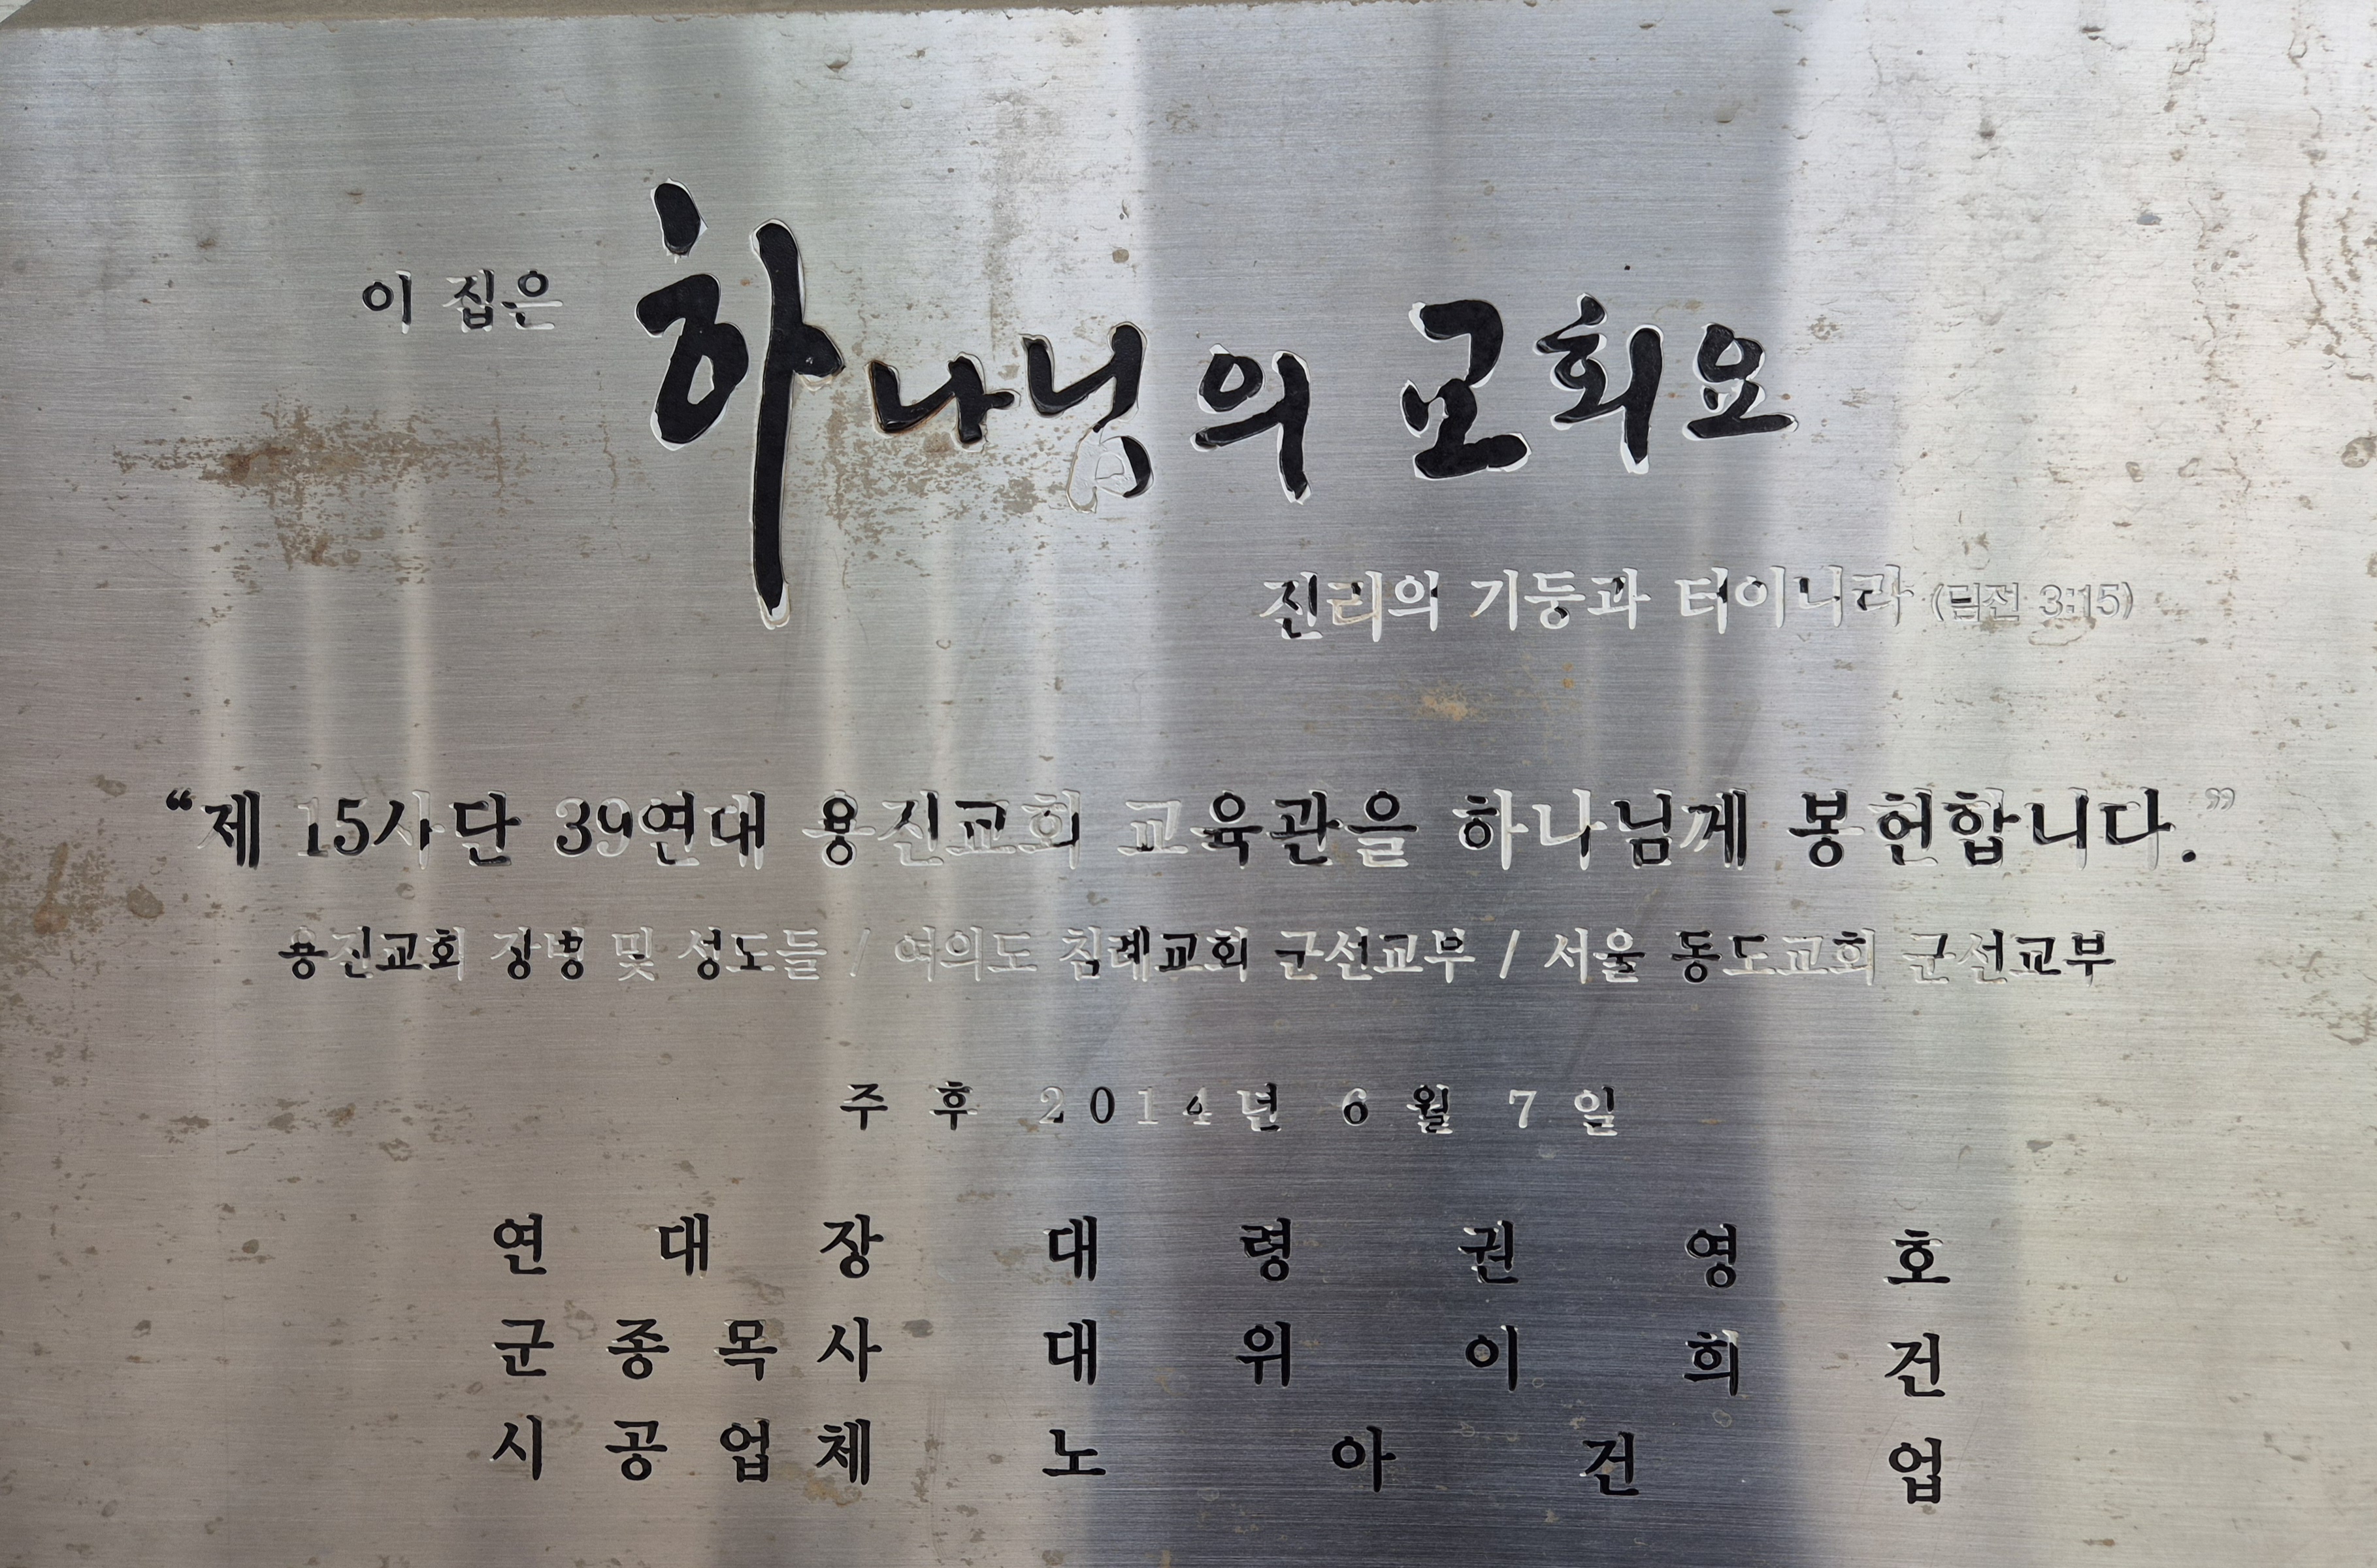 이 집은 하나님의 교회요
진리의 기둥과 터이니라 (딤전 3:15)
“제 15사단 39연대 용진교회 교육관을 하나님께 봉헌합니다.”
용진교회 장병 및 성도들 / 여의도 침례교회 군선교부 / 서울 동도교회 군선교부
주 후 2014년 6월 7일
연대장 대령 권영호
군종목사 대위 이희건
시공업체 노아건업